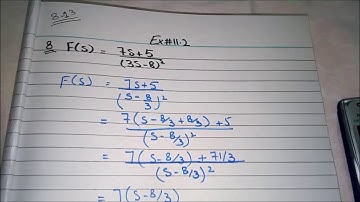 8.13
Ex#11.2
8 F(s) = 7s+5 / (3s-8)²
F(s) = 7s+5 / (s-8/3)²
= 7(s-8/3+8/3)+5 / (s-8/3)²
= 7(s-8/3) + 71/3 / (s-8/3)²
= 7(s-8/3)